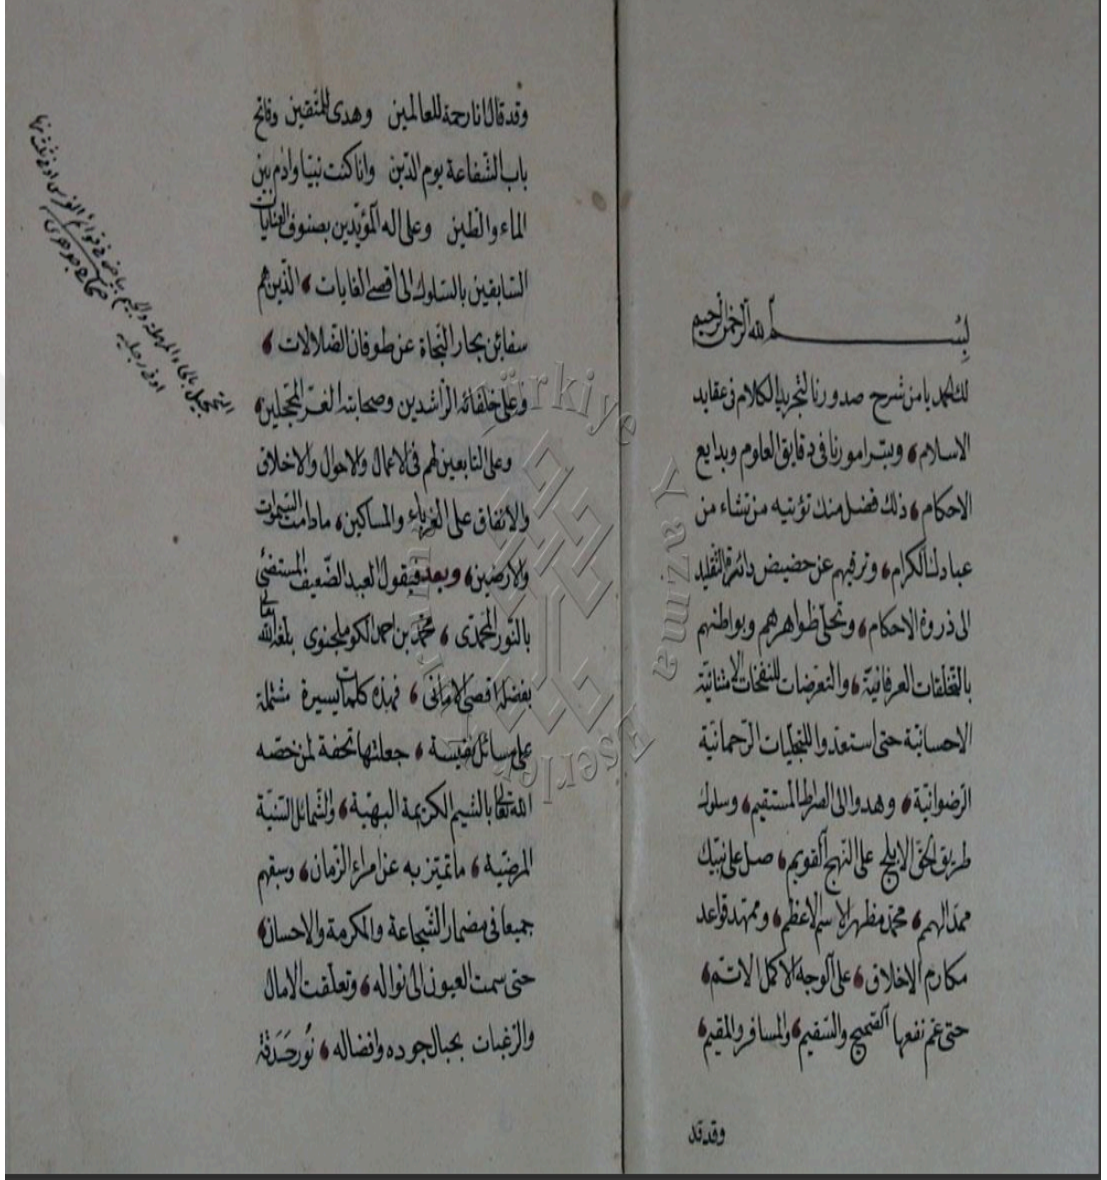 بسم الله الرحمن الرحيم
لك الحمد يا من شرح صدورنا لتجريد الكلام فى عقايد
الاسلام ، ويسر امورنا فى دقايق العلوم وبدايع
الاحكام ، ذلك فضل منك تؤتيه من تشاء من
عبادك الكرام ، وترقيهم عن حضيض دائرة التقليد
الى ذروة الاحكام ، وتحلى ظواهرهم وبواطنهم
بالتخلقات العرفانية ، والتعرضات للنفحات الامتنانية
الاحسانية حتى استعدوا للتجليات الرحمانية
الرضوانية ، وهدوا الى الصراط المستقيم ، وسلوك
طريق الحق الابلج على النهج القويم ، صل على نبيك
ممد الهمم ، محمد مظهر الاسم الاعظم ، وممهد قواعد
مكارم الاخلاق ، على الوجه الاكمل الاتم ،
حتى عم نفعها الصحيح والسقيم ، والمسافر والمقيم ،
وقد قد
وقد قال انا رحمة للعالمين وهدى للمتقين وفاتح
باب الشفاعة يوم الدين وانا كنت نبيا وادم بين
الماء والطين وعلى اله المؤيدين بصنوف العنايات
السابقين بالسلوك الى اقصى الغايات ، الذين هم
سفائن بحار النجاة عن طوفان الضلالات ،
وعلى خلفائه الراشدين وصحابته الغر المحجلين ،
وعلى التابعين لهم فى الاعمال والاحوال والاخلاق
والانفاق على الغرباء والمساكين ، مادامت السموات
والارضين ، وبعد فيقول العبد الضعيف المستضئ
بالنور المحمدى ، محمد بن احمد الكوملجنوى بلغه الله تعالى
بفضله اقصى الامانى ، فهذه كلمات يسيرة مشتملة
على مسائل نفيسة ، جعلتها تحفة لمن خصه
الله تعالى بالشيم الكريمة البهية ، والشمائل السنية
المرضية ، ما تميز به عن امراء الزمان ، وسبقهم
جميعا فى مضمار الشجاعة والمكرمة والاحسان ،
حتى سمت العيون الى نواله ، وتعلقت الامال
والرغبات بحبال جوده وافضاله ، نور حدقة
التحجيل بالحاء المهملة والجيم بياض فى قوائم الفرس او فى ثلث منها
او فى رجليه
صحاح جوهرى
Türkiye Yazma Eserler